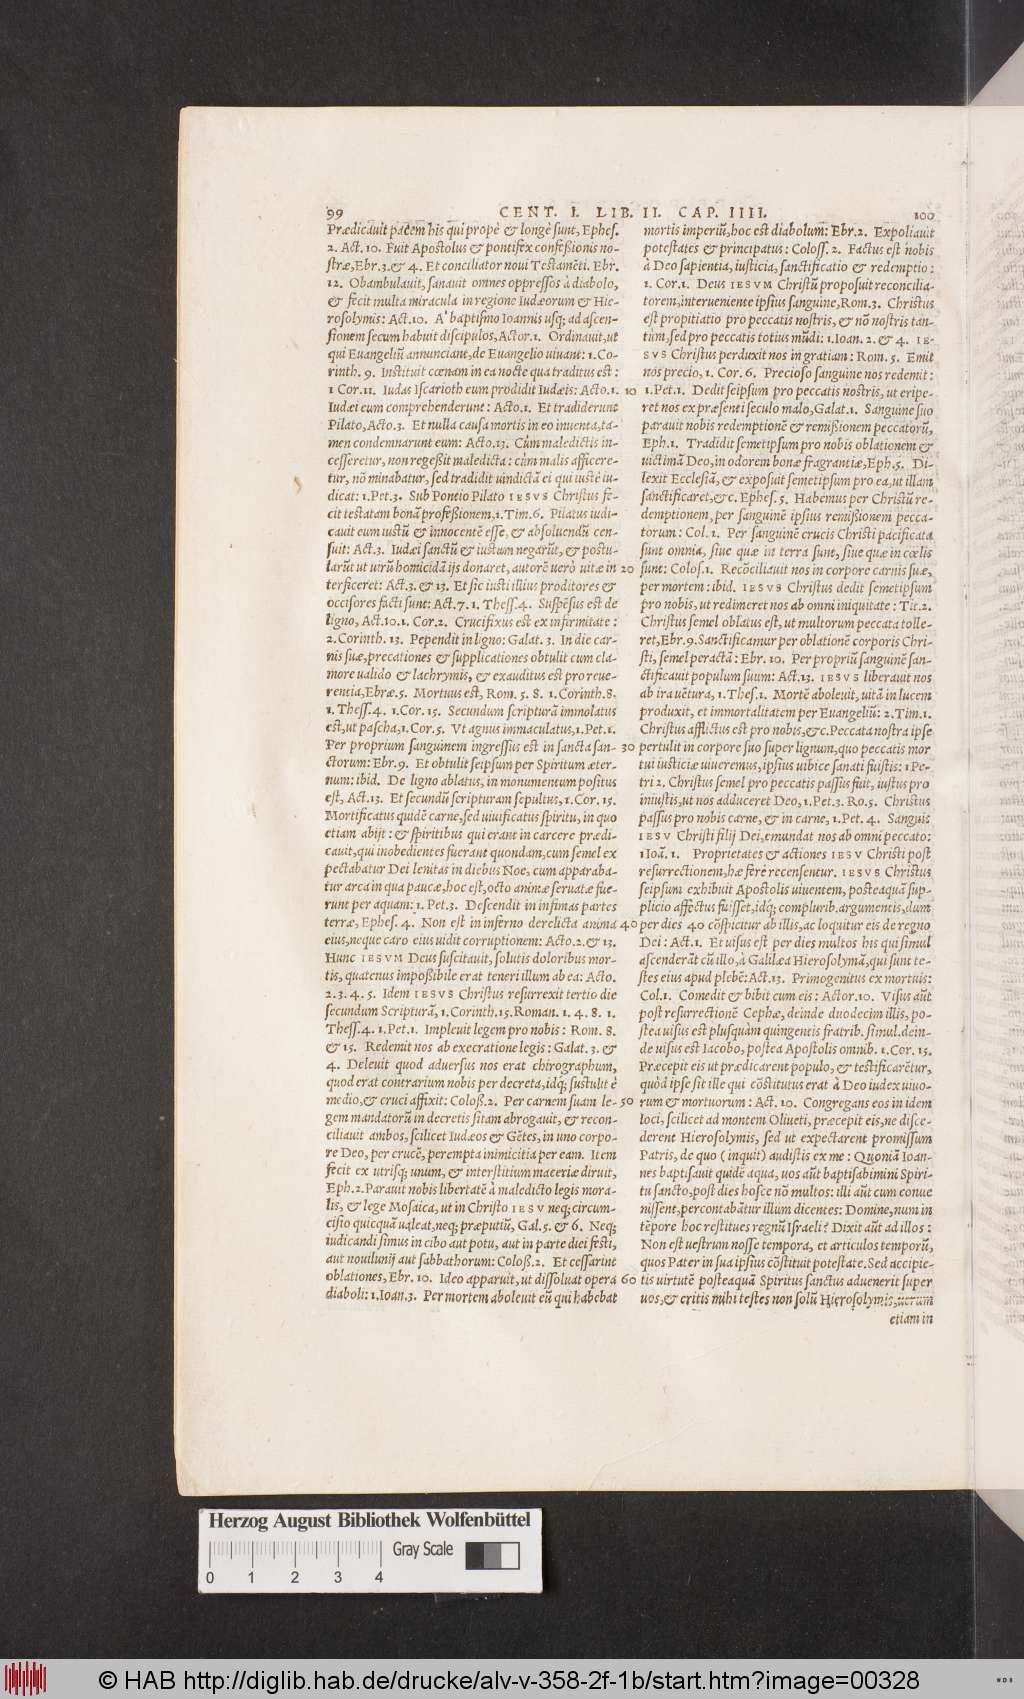 99 CENT. I. LIB. II. CAP. IIII. 100
Prædicauit pacem his qui propè & longè sunt, Ephes.
2. Act. 10. Fuit Apostolus & pontifex confeßionis no-
stræ, Ebr. 3. & 4. Et conciliator noui Testamẽti. Ebr.
12. Obambulauit, sanauit omnes oppressos à diabolo,
& fecit multa miracula in regione Iudæorum & Hie-
rosolymis: Act. 10. A' baptismo Ioannis usq; ad ascen-
sionem secum habuit discipulos, Actor. 1. Ordinauit, ut
qui Euangeliũ annunciant, de Euangelio uiuant: 1. Co-
rinth. 9. Instituit cœnam in ea nocte qua traditus est:
1 Cor. 11. Iudas Iscarioth eum prodidit Iudæis: Acto. 1. 10
Iudæi eum comprehenderunt: Acto. 1. Et tradiderunt
Pilato, Acto. 3. Et nulla causa mortis in eo inuenta, ta-
men condemnarunt eum: Acto. 13. Cùm maledictis in-
cesseretur, non regeßit maledicta: cùm malis afficere-
tur, nõ minabatur, sed tradidit uindictã ei qui iustè iu-
dicat: 1. Pet. 3. Sub Pontio Pilato IESVS Christus fe-
cit testatam bonã profeßionem, 1. Tim. 6. Pilatus iudi-
cauit eum iustũ & innocentẽ esse, & absoluendũ cen-
suit: Act. 3. Iudæi sanctũ & iustum negarũt, & postu-
larũt ut uirũ homicidã ijs donaret, autorẽ uerò uitæ in 20
terficeret: Act. 3. & 13. Et sic iusti illius proditores &
occisores facti sunt: Act. 7. 1. Thess. 4. Suspẽsus est de
ligno, Act. 10. 1. Cor. 2. Crucifixus est ex infirmitate:
2. Corinth. 13. Pependit in ligno: Galat. 3. In die car-
nis suæ, precationes & supplicationes obtulit cum cla-
more ualido & lachrymis, & exauditus est pro reue-
rentia, Ebræ. 5. Mortuus est, Rom. 5. 8. 1. Corinth. 8.
1. Thess. 4. 1. Cor. 15. Secundum scripturã immolatus
est, ut pascha, 1. Cor. 5. Vt agnus immaculatus, 1. Pet. 1.
Per proprium sanguinem ingressus est in sancta san- 30
ctorum: Ebr. 9. Et obtulit seipsum per Spiritum æter-
num: ibid. De ligno ablatus, in monumentum positus
est, Act. 13. Et secundũ scripturam sepultus, 1. Cor. 15.
Mortificatus quidẽ carne, sed uiuificatus spiritu, in quo
etiam abijt: & spiritibus qui erant in carcere prædi-
cauit, qui inobedientes fuerant quondam, cum semel ex
pectabatur Dei lenitas in diebus Noe, cum apparaba-
tur arca in qua paucæ, hoc est, octo animæ seruatæ fue-
runt per aquam: 1. Pet. 3. Descendit in infimas partes
terræ, Ephes. 4. Non est in inferno derelicta anima 40
eius, neque caro eius uidit corruptionem: Acto. 2. & 13.
Hunc IESVM Deus suscitauit, solutis doloribus mor-
tis, quatenus impoßibile erat teneri illum ab ea: Acto.
2. 3. 4. 5. Idem IESVS Christus resurrexit tertio die
secundum Scripturã, 1. Corinth. 15. Roman. 1. 4. 8. 1.
Thess. 4. 1. Pet. 1. Impleuit legem pro nobis: Rom. 8.
& 15. Redemit nos ab execratione legis: Galat. 3. &
4. Deleuit quod aduersus nos erat chirographum,
quod erat contrarium nobis per decreta, idq; sustulit è
medio, & cruci affixit: Coloß. 2. Per carnem suam le- 50
gem mandatorũ in decretis sitam abrogauit, & recon-
ciliauit ambos, scilicet Iudæos & Gẽtes, in uno corpo-
re Deo, per crucẽ, perempta inimicitia per eam. Item
fecit ex utrisq; unum, & interstitium maceriæ diruit,
Eph. 2. Parauit nobis libertatẽ à maledicto legis mora-
lis, & lege Mosaica, ut in Christo IESV neq; circum-
cisio quicquã ualeat, neq; præputiũ, Gal. 5. & 6. Neq;
iudicandi simus in cibo aut potu, aut in parte diei festi,
aut nouilunij aut sabbathorum: Coloß. 2. Et cessarint
oblationes, Ebr. 10. Ideo apparuit, ut dissoluat opera 60
diaboli: 1. Ioan. 3. Per mortem aboleuit eũ qui habebat
mortis imperiũ, hoc est diabolum: Ebr. 2. Expoliauit
potestates & principatus: Coloss. 2. Factus est nobis
à Deo sapientia, iusticia, sanctificatio & redemptio:
1. Cor. 1. Deus IESVM Christũ proposuit reconcilia-
torem, interueniente ipsius sanguine, Rom. 3. Christus
est propitiatio pro peccatis nostris, & nõ nostris tan-
tùm, sed pro peccatis totius mũdi: 1. Ioan. 2. & 4. IE-
SVS Christus perduxit nos in gratiam: Rom. 5. Emit
nos precio, 1. Cor. 6. Precioso sanguine nos redemit:
1. Pet. 1. Dedit seipsum pro peccatis nostris, ut eripe-
ret nos ex præsenti seculo malo, Galat. 1. Sanguine suo
parauit nobis redemptionẽ & remißionem peccatorũ,
Eph. 1. Tradidit semetipsum pro nobis oblationem &
uictimã Deo, in odorem bonæ fragrantiæ, Eph. 5. Di-
lexit Ecclesiã, & exposuit semetipsum pro ea, ut illam
sanctificaret, &c. Ephes. 5. Habemus per Christũ re-
demptionem, per sanguinẽ ipsius remißionem pecca-
torum: Col. 1. Per sanguinẽ crucis Christi pacificata
sunt omnia, siue quæ in terra sunt, siue quæ in cœlis
sunt: Colos. 1. Recõciliauit nos in corpore carnis suæ,
per mortem: ibid. IESVS Christus dedit semetipsum
pro nobis, ut redimeret nos ab omni iniquitate: Tit. 2.
Christus semel oblatus est, ut multorum peccata tolle-
ret, Ebr. 9. Sanctificamur per oblationẽ corporis Chri-
sti, semel peractã: Ebr. 10. Per propriũ sanguinẽ san-
ctificauit populum suum: Act. 13. IESVS liberauit nos
ab ira uẽtura, 1. Thes. 1. Mortẽ aboleuit, uitã in lucem
produxit, et immortalitatem per Euangeliũ: 2. Tim. 1.
Christus afflictus est pro nobis, &c. Peccata nostra ipse
pertulit in corpore suo super lignum, quo peccatis mor
tui iusticiæ uiueremus, ipsius uibice sanati fuistis: 1 Pe-
tri 2. Christus semel pro peccatis passus fuit, iustus pro
iniustis, ut nos adduceret Deo, 1. Pet. 3. Ro. 5. Christus
passus pro nobis carne, & in carne, 1. Pet. 4. Sanguis
IESV Christi filij Dei, emundat nos ab omni peccato:
1 Ioã. 1. Proprietates & actiones IESV Christi post
resurrectionem, hæ ferè recensentur. IESVS Christus
seipsum exhibuit Apostolis uiuentem, posteaquã sup-
plicio affectus fuisset, idq; complurib. argumentis, dum
per dies 40 cõspicitur ab illis, ac loquitur eis de regno
Dei: Act. 1. Et uisus est per dies multos his qui simul
ascenderãt cũ illo, à Galilæa Hierosolymã, qui sunt te-
stes eius apud plebẽ: Act. 13. Primogenitus ex mortuis:
Col. 1. Comedit & bibit cum eis: Actor. 10. Visus aũt
post resurrectionẽ Cephæ, deinde duodecim illis, po-
stea uisus est plusquàm quingentis fratrib. simul. dein-
de uisus est Iacobo, postea Apostolis omnib. 1. Cor. 15.
Præcepit eis ut prædicarent populo, & testificarẽtur,
quòd ipse sit ille qui cõstitutus erat à Deo iudex uiuo-
rum & mortuorum: Act. 10. Congregans eos in idem
loci, scilicet ad montem Oliueti, præcepit eis, ne disce-
derent Hierosolymis, sed ut expectarent promissum
Patris, de quo (inquit) audistis ex me: Quoniã Ioan-
nes baptisauit quidẽ aqua, uos aũt baptisabimini Spiri-
tu sancto, post dies hosce nõ multos: illi aũt cum conue
nissent, percontabãtur illum dicentes: Domine, num in
tẽpore hoc restitues regnũ Israeli? Dixit aũt ad illos:
Non est uestrum nosse tempora, et articulos temporũ,
quos Pater in sua ipsius cõstituit potestate. Sed accipie-
tis uirtutẽ posteaquã Spiritus sanctus aduenerit super
uos, & eritis mihi testes non solũ Hierosolymis, uerum
etiam in
Herzog August Bibliothek Wolfenbüttel
Gray Scale
0 1 2 3 4
© HAB http://diglib.hab.de/drucke/alv-v-358-2f-1b/start.htm?image=00328